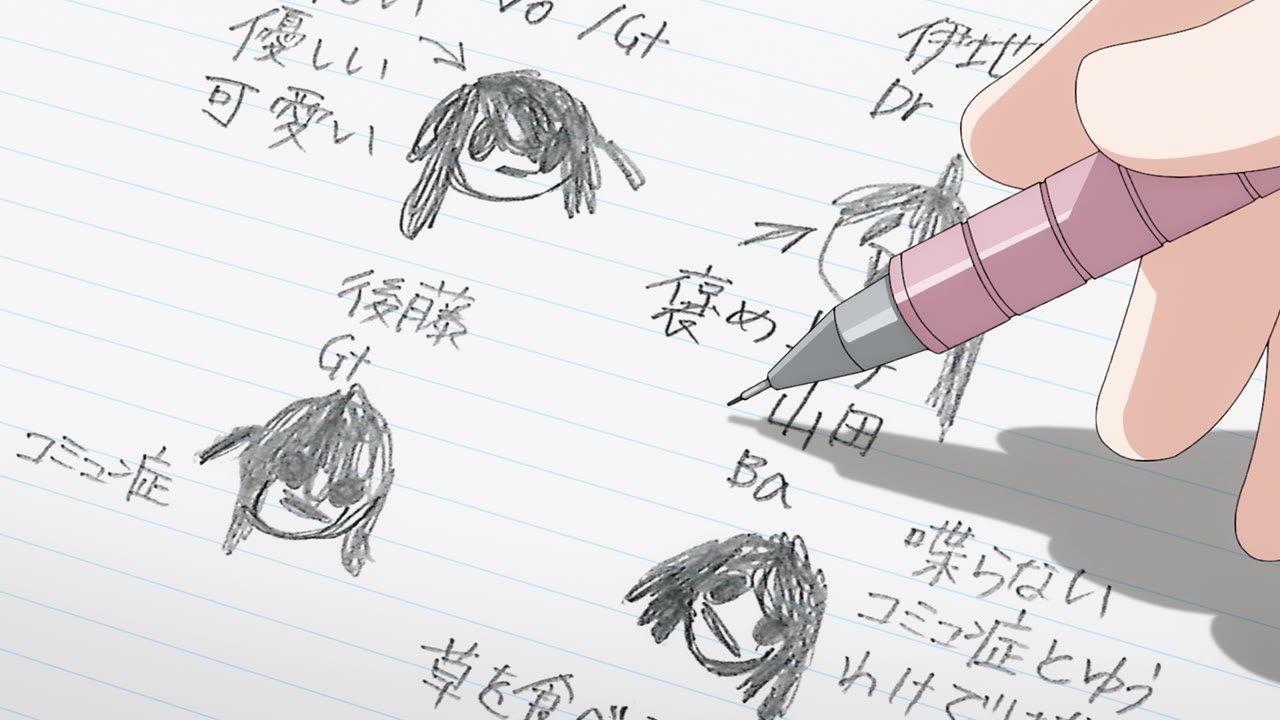 Vo/Gt
優しい
可愛い
伊地
Dr
後藤
Gt
コミュ症
褒め
山田
Ba
喋らない
コミュ症とゆう
わけでは
草を食べ